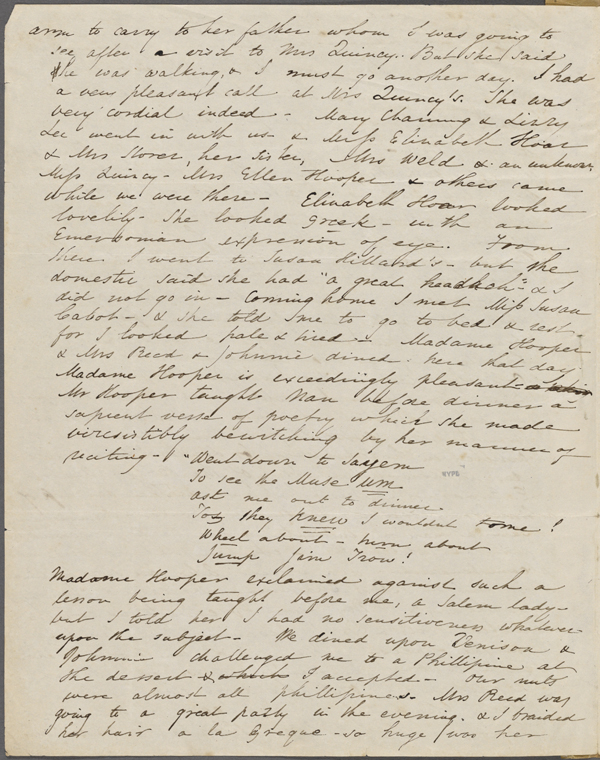 arm to carry to her father whom I was going to
see after a visit to Mrs Quincy. But she said
she was walking, & I must go another day. I had
a very pleasant call at Mrs Quincy's. She was
very cordial indeed - Mary Channing & Lizzy
Lee went in with us & Miss Elizabeth Hoar
& Mrs Storer, her sister, Mrs Weld & an unknown
Miss Quincy - Mrs Ellen Hooper & others came
while we were there - Elizabeth Hoar looked
lovelily - She looked Greek - with an
Emersonian expression of eye. From
there I went to Susan Hillard's - but the
domestic said she had "a great headach" - & I
did not go in - Coming home I met Miss Susan
Cabot - & she told me to go to bed & rest -
for I looked pale & tired - Madame Hooper
& Mrs Reed & Johnnie dined here that day.
Madame Hooper is exceedingly pleasant
Mr Hooper taught Nan before dinner a
sapient verse of poetry which she made
irresistibly bewitching by her manner of
reciting - "Went down to Sayem
To see the Muse um
ask me out to dinner
Tos they knew I wouldnt tome!
Wheel about - turn about
Jump Jim Trow!
Madame Hooper exclaimed against such a
lesson being taught before me, a Salem lady -
but I told her I had no sensitiveness whatever
upon the subject - We dined upon Venison &
Johnnie challenged me to a Phillipine at
the dessert & which I accepted - Our nuts
were almost all phillipines. Mrs Reed was
going to a great party in the evening. & I braided
her hair a la Greque - so huge was her
NYPL